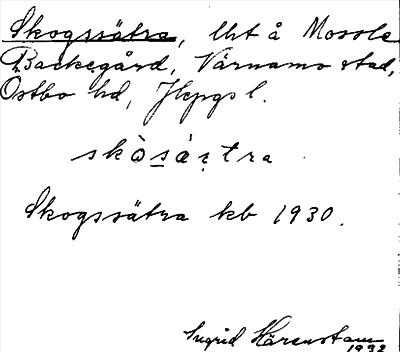 Skogssätra, lht å Mossle
Backegård, Värnamo stad,
Östbo hd, Jkpgs l.
skòsä̀tra
Skogssätra kb 1930.
Ingrid Härenstam
1932